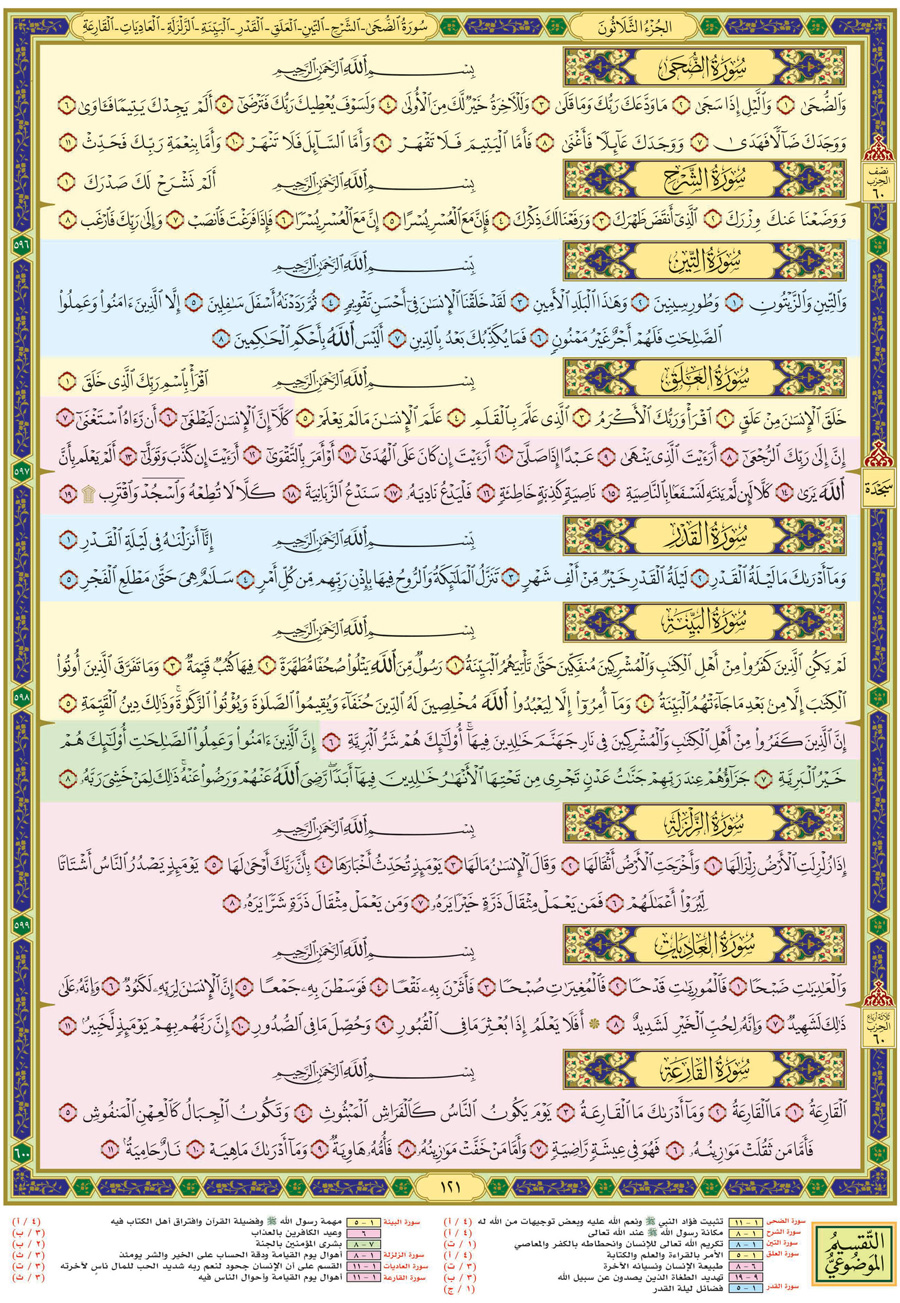 الجزء الثلاثون
سورة الضحى - الشرح - التين - العلق - القدر - البينة - الزلزلة - العاديات - القارعة
سُورَةُ الضُّحَىٰ
بِسْمِ ٱللَّهِ ٱلرَّحْمَٰنِ ٱلرَّحِيمِ
وَٱلضُّحَىٰ ١ وَٱلَّيْلِ إِذَا سَجَىٰ ٢ مَا وَدَّعَكَ رَبُّكَ وَمَا قَلَىٰ ٣ وَلَلْءَاخِرَةُ خَيْرٌ لَّكَ مِنَ ٱلْأُولَىٰ ٤ وَلَسَوْفَ يُعْطِيكَ رَبُّكَ فَتَرْضَىٰٓ ٥ أَلَمْ يَجِدْكَ يَتِيمًا فَـَٔاوَىٰ ٦
وَوَجَدَكَ ضَآلًّا فَهَدَىٰ ٧ وَوَجَدَكَ عَآئِلًا فَأَغْنَىٰ ٨ فَأَمَّا ٱلْيَتِيمَ فَلَا تَقْهَرْ ٩ وَأَمَّا ٱلسَّآئِلَ فَلَا تَنْهَرْ ١٠ وَأَمَّا بِنِعْمَةِ رَبِّكَ فَحَدِّثْ ١١
نصف الحزب ٦٠
سُورَةُ الشَّرْحِ
بِسْمِ ٱللَّهِ ٱلرَّحْمَٰنِ ٱلرَّحِيمِ
أَلَمْ نَشْرَحْ لَكَ صَدْرَكَ ١
وَوَضَعْنَا عَنكَ وِزْرَكَ ٢ ٱلَّذِىٓ أَنقَضَ ظَهْرَكَ ٣ وَرَفَعْنَا لَكَ ذِكْرَكَ ٤ فَإِنَّ مَعَ ٱلْعُسْرِ يُسْرًا ٥ إِنَّ مَعَ ٱلْعُسْرِ يُسْرًا ٦ فَإِذَا فَرَغْتَ فَٱنصَبْ ٧ وَإِلَىٰ رَبِّكَ فَٱرْغَب ٨
٥٩٦
سُورَةُ التِّينِ
بِسْمِ ٱللَّهِ ٱلرَّحْمَٰنِ ٱلرَّحِيمِ
وَٱلتِّينِ وَٱلزَّيْتُونِ ١ وَطُورِ سِينِينَ ٢ وَهَٰذَا ٱلْبَلَدِ ٱلْأَمِينِ ٣ لَقَدْ خَلَقْنَا ٱلْإِنسَٰنَ فِىٓ أَحْسَنِ تَقْوِيمٍ ٤ ثُمَّ رَدَدْنَٰهُ أَسْفَلَ سَٰفِلِينَ ٥ إِلَّا ٱلَّذِينَ ءَامَنُوا۟ وَعَمِلُوا۟
ٱلصَّٰلِحَٰتِ فَلَهُمْ أَجْرٌ غَيْرُ مَمْنُونٍ ٦ فَمَا يُكَذِّبُكَ بَعْدُ بِٱلدِّينِ ٧ أَلَيْسَ ٱللَّهُ بِأَحْكَمِ ٱلْحَٰكِمِينَ ٨
سُورَةُ العَلَقِ
بِسْمِ ٱللَّهِ ٱلرَّحْمَٰنِ ٱلرَّحِيمِ
ٱقْرَأْ بِٱسْمِ رَبِّكَ ٱلَّذِى خَلَقَ ١
خَلَقَ ٱلْإِنسَٰنَ مِنْ عَلَقٍ ٢ ٱقْرَأْ وَرَبُّكَ ٱلْأَكْرَمُ ٣ ٱلَّذِى عَلَّمَ بِٱلْقَلَمِ ٤ عَلَّمَ ٱلْإِنسَٰنَ مَا لَمْ يَعْلَمْ ٥ كَلَّآ إِنَّ ٱلْإِنسَٰنَ لَيَطْغَىٰٓ ٦ أَن رَّءَاهُ ٱسْتَغْنَىٰٓ ٧
إِنَّ إِلَىٰ رَبِّكَ ٱلرُّجْعَىٰٓ ٨ أَرَءَيْتَ ٱلَّذِى يَنْهَىٰ ٩ عَبْدًا إِذَا صَلَّىٰٓ ١٠ أَرَءَيْتَ إِن كَانَ عَلَى ٱلْهُدَىٰٓ ١١ أَوْ أَمَرَ بِٱلتَّقْوَىٰٓ ١٢ أَرَءَيْتَ إِن كَذَّبَ وَتَوَلَّىٰٓ ١٣ أَلَمْ يَعْلَم بِأَنَّ
٥٩٧
ٱللَّهَ يَرَىٰ ١٤ كَلَّا لَئِن لَّمْ يَنتَهِ لَنَسْفَعًۢا بِٱلنَّاصِيَةِ ١٥ نَاصِيَةٍ كَٰذِبَةٍ خَاطِئَةٍ ١٦ فَلْيَدْعُ نَادِيَهُۥ ١٧ سَنَدْعُ ٱلزَّبَانِيَةَ ١٨ كَلَّا لَا تُطِعْهُ وَٱسْجُدْ وَٱقْتَرِب ۩ ١٩
سجدة
سُورَةُ القَدْرِ
بِسْمِ ٱللَّهِ ٱلرَّحْمَٰنِ ٱلرَّحِيمِ
إِنَّآ أَنزَلْنَٰهُ فِى لَيْلَةِ ٱلْقَدْرِ ١
وَمَآ أَدْرَىٰكَ مَا لَيْلَةُ ٱلْقَدْرِ ٢ لَيْلَةُ ٱلْقَدْرِ خَيْرٌ مِّنْ أَلْفِ شَهْرٍ ٣ تَنَزَّلُ ٱلْمَلَٰٓئِكَةُ وَٱلرُّوحُ فِيهَا بِإِذْنِ رَبِّهِم مِّن كُلِّ أَمْرٍ ٤ سَلَٰمٌ هِىَ حَتَّىٰ مَطْلَعِ ٱلْفَجْرِ ٥
سُورَةُ البَيِّنَةِ
بِسْمِ ٱللَّهِ ٱلرَّحْمَٰنِ ٱلرَّحِيمِ
لَمْ يَكُنِ ٱلَّذِينَ كَفَرُوا۟ مِنْ أَهْلِ ٱلْكِتَٰبِ وَٱلْمُشْرِكِينَ مُنفَكِّينَ حَتَّىٰ تَأْتِيَهُمُ ٱلْبَيِّنَةُ ١ رَسُولٌ مِّنَ ٱللَّهِ يَتْلُوا۟ صُحُفًا مُّطَهَّرَةً ٢ فِيهَا كُتُبٌ قَيِّمَةٌ ٣ وَمَا تَفَرَّقَ ٱلَّذِينَ أُوتُوا۟
ٱلْكِتَٰبَ إِلَّا مِنۢ بَعْدِ مَا جَآءَتْهُمُ ٱلْبَيِّنَةُ ٤ وَمَآ أُمِرُوٓا۟ إِلَّا لِيَعْبُدُوا۟ ٱللَّهَ مُخْلِصِينَ لَهُ ٱلدِّينَ حُنَفَآءَ وَيُقِيمُوا۟ ٱلصَّلَوٰةَ وَيُؤْتُوا۟ ٱلزَّكَوٰةَ ۚ وَذَٰلِكَ دِينُ ٱلْقَيِّمَةِ ٥
٥٩٨
إِنَّ ٱلَّذِينَ كَفَرُوا۟ مِنْ أَهْلِ ٱلْكِتَٰبِ وَٱلْمُشْرِكِينَ فِى نَارِ جَهَنَّمَ خَٰلِدِينَ فِيهَآ ۚ أُو۟لَٰٓئِكَ هُمْ شَرُّ ٱلْبَرِيَّةِ ٦ إِنَّ ٱلَّذِينَ ءَامَنُوا۟ وَعَمِلُوا۟ ٱلصَّٰلِحَٰتِ أُو۟لَٰٓئِكَ هُمْ
خَيْرُ ٱلْبَرِيَّةِ ٧ جَزَآؤُهُمْ عِندَ رَبِّهِمْ جَنَّٰتُ عَدْنٍ تَجْرِى مِن تَحْتِهَا ٱلْأَنْهَٰرُ خَٰلِدِينَ فِيهَآ أَبَدًا ۖ رَّضِىَ ٱللَّهُ عَنْهُمْ وَرَضُوا۟ عَنْهُ ۚ ذَٰلِكَ لِمَنْ خَشِىَ رَبَّهُۥ ٨
سُورَةُ الزَّلْزَلَةِ
بِسْمِ ٱللَّهِ ٱلرَّحْمَٰنِ ٱلرَّحِيمِ
إِذَا زُلْزِلَتِ ٱلْأَرْضُ زِلْزَالَهَا ١ وَأَخْرَجَتِ ٱلْأَرْضُ أَثْقَالَهَا ٢ وَقَالَ ٱلْإِنسَٰنُ مَا لَهَا ٣ يَوْمَئِذٍ تُحَدِّثُ أَخْبَارَهَا ٤ بِأَنَّ رَبَّكَ أَوْحَىٰ لَهَا ٥ يَوْمَئِذٍ يَصْدُرُ ٱلنَّاسُ أَشْتَاتًا
لِّيُرَوْا۟ أَعْمَٰلَهُمْ ٦ فَمَن يَعْمَلْ مِثْقَالَ ذَرَّةٍ خَيْرًا يَرَهُۥ ٧ وَمَن يَعْمَلْ مِثْقَالَ ذَرَّةٍ شَرًّا يَرَهُۥ ٨
٥٩٩
سُورَةُ العَادِيَاتِ
بِسْمِ ٱللَّهِ ٱلرَّحْمَٰنِ ٱلرَّحِيمِ
وَٱلْعَٰدِيَٰتِ ضَبْحًا ١ فَٱلْمُورِيَٰتِ قَدْحًا ٢ فَٱلْمُغِيرَٰتِ صُبْحًا ٣ فَأَثَرْنَ بِهِۦ نَقْعًا ٤ فَوَسَطْنَ بِهِۦ جَمْعًا ٥ إِنَّ ٱلْإِنسَٰنَ لِرَبِّهِۦ لَكَنُودٌ ٦ وَإِنَّهُۥ عَلَىٰ
ذَٰلِكَ لَشَهِيدٌ ٧ وَإِنَّهُۥ لِحُبِّ ٱلْخَيْرِ لَشَدِيدٌ ٨ ۞ أَفَلَا يَعْلَمُ إِذَا بُعْثِرَ مَا فِى ٱلْقُبُورِ ٩ وَحُصِّلَ مَا فِى ٱلصُّدُورِ ١٠ إِنَّ رَبَّهُم بِهِمْ يَوْمَئِذٍ لَّخَبِيرٌۢ ١١
ثلاثة أرباع الحزب ٦٠
سُورَةُ القَارِعَةِ
بِسْمِ ٱللَّهِ ٱلرَّحْمَٰنِ ٱلرَّحِيمِ
ٱلْقَارِعَةُ ١ مَا ٱلْقَارِعَةُ ٢ وَمَآ أَدْرَىٰكَ مَا ٱلْقَارِعَةُ ٣ يَوْمَ يَكُونُ ٱلنَّاسُ كَٱلْفَرَاشِ ٱلْمَبْثُوثِ ٤ وَتَكُونُ ٱلْجِبَالُ كَٱلْعِهْنِ ٱلْمَنفُوشِ ٥
فَأَمَّا مَن ثَقُلَتْ مَوَٰزِينُهُۥ ٦ فَهُوَ فِى عِيشَةٍ رَّاضِيَةٍ ٧ وَأَمَّا مَنْ خَفَّتْ مَوَٰزِينُهُۥ ٨ فَأُمُّهُۥ هَاوِيَةٌ ٩ وَمَآ أَدْرَىٰكَ مَا هِيَهْ ١٠ نَارٌ حَامِيَةٌۢ ١١
٦٠٠
١٢١
التقسيم الموضوعي
سورة الضحى ١ - ١١ تثبيت فؤاد النبي ﷺ ونعم الله عليه وبعض توجيهات من الله له (٤ / أ)
سورة الشرح ١ - ٨ مكانة رسول الله ﷺ عند الله تعالى (٤ / أ)
سورة التين ١ - ٨ تكريم الله تعالى للإنسان وانحطاطه بالكفر والمعاصي (١ / ت)
سورة العلق ١ - ٥ الأمر بالقراءة والعلم والكتابة (٤ / أ)
٦ - ٨ طبيعة الإنسان ونسيانه الآخرة (٣ / ت)
٩ - ١٩ تهديد الطغاة الذين يصدون عن سبيل الله (٣ / ب)
سورة القدر ١ - ٥ فضائل ليلة القدر (١ / ج)
سورة البينة ١ - ٥ مهمة رسول الله ﷺ وفضيلة القرآن وافتراق أهل الكتاب فيه (٤ / أ)
٦ وعيد الكافرين بالعذاب (٣ / ب)
٧ - ٨ بشرى المؤمنين بالجنة (٢ / ب)
سورة الزلزلة ١ - ٨ أهوال يوم القيامة ودقة الحساب على الخير والشر يومئذ (٣ / ت)
سورة العاديات ١ - ١١ القسم على أن الإنسان جحود لنعم ربه شديد الحب للمال ناسٍ لآخرته (٣ / ت)
سورة القارعة ١ - ١١ أهوال يوم القيامة وأحوال الناس فيه (٣ / ث)